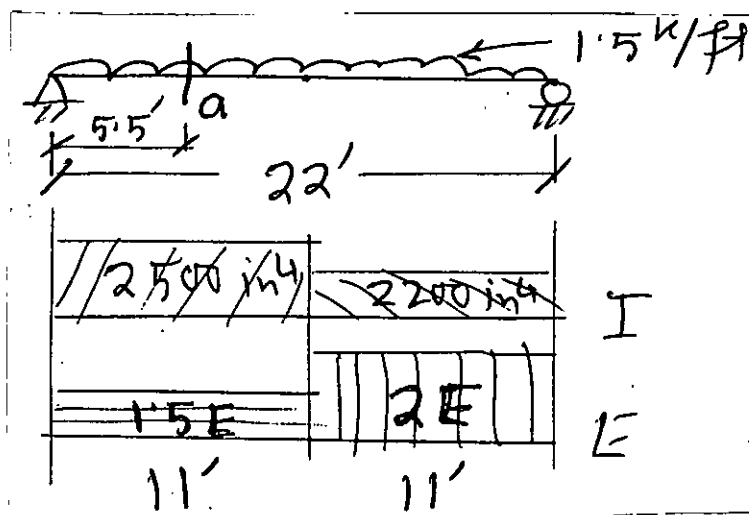 1.5 k/ft
a
5.5'
22'
2500 in4
2200 in4
I
1.5 E
2 E
E
11'
11'